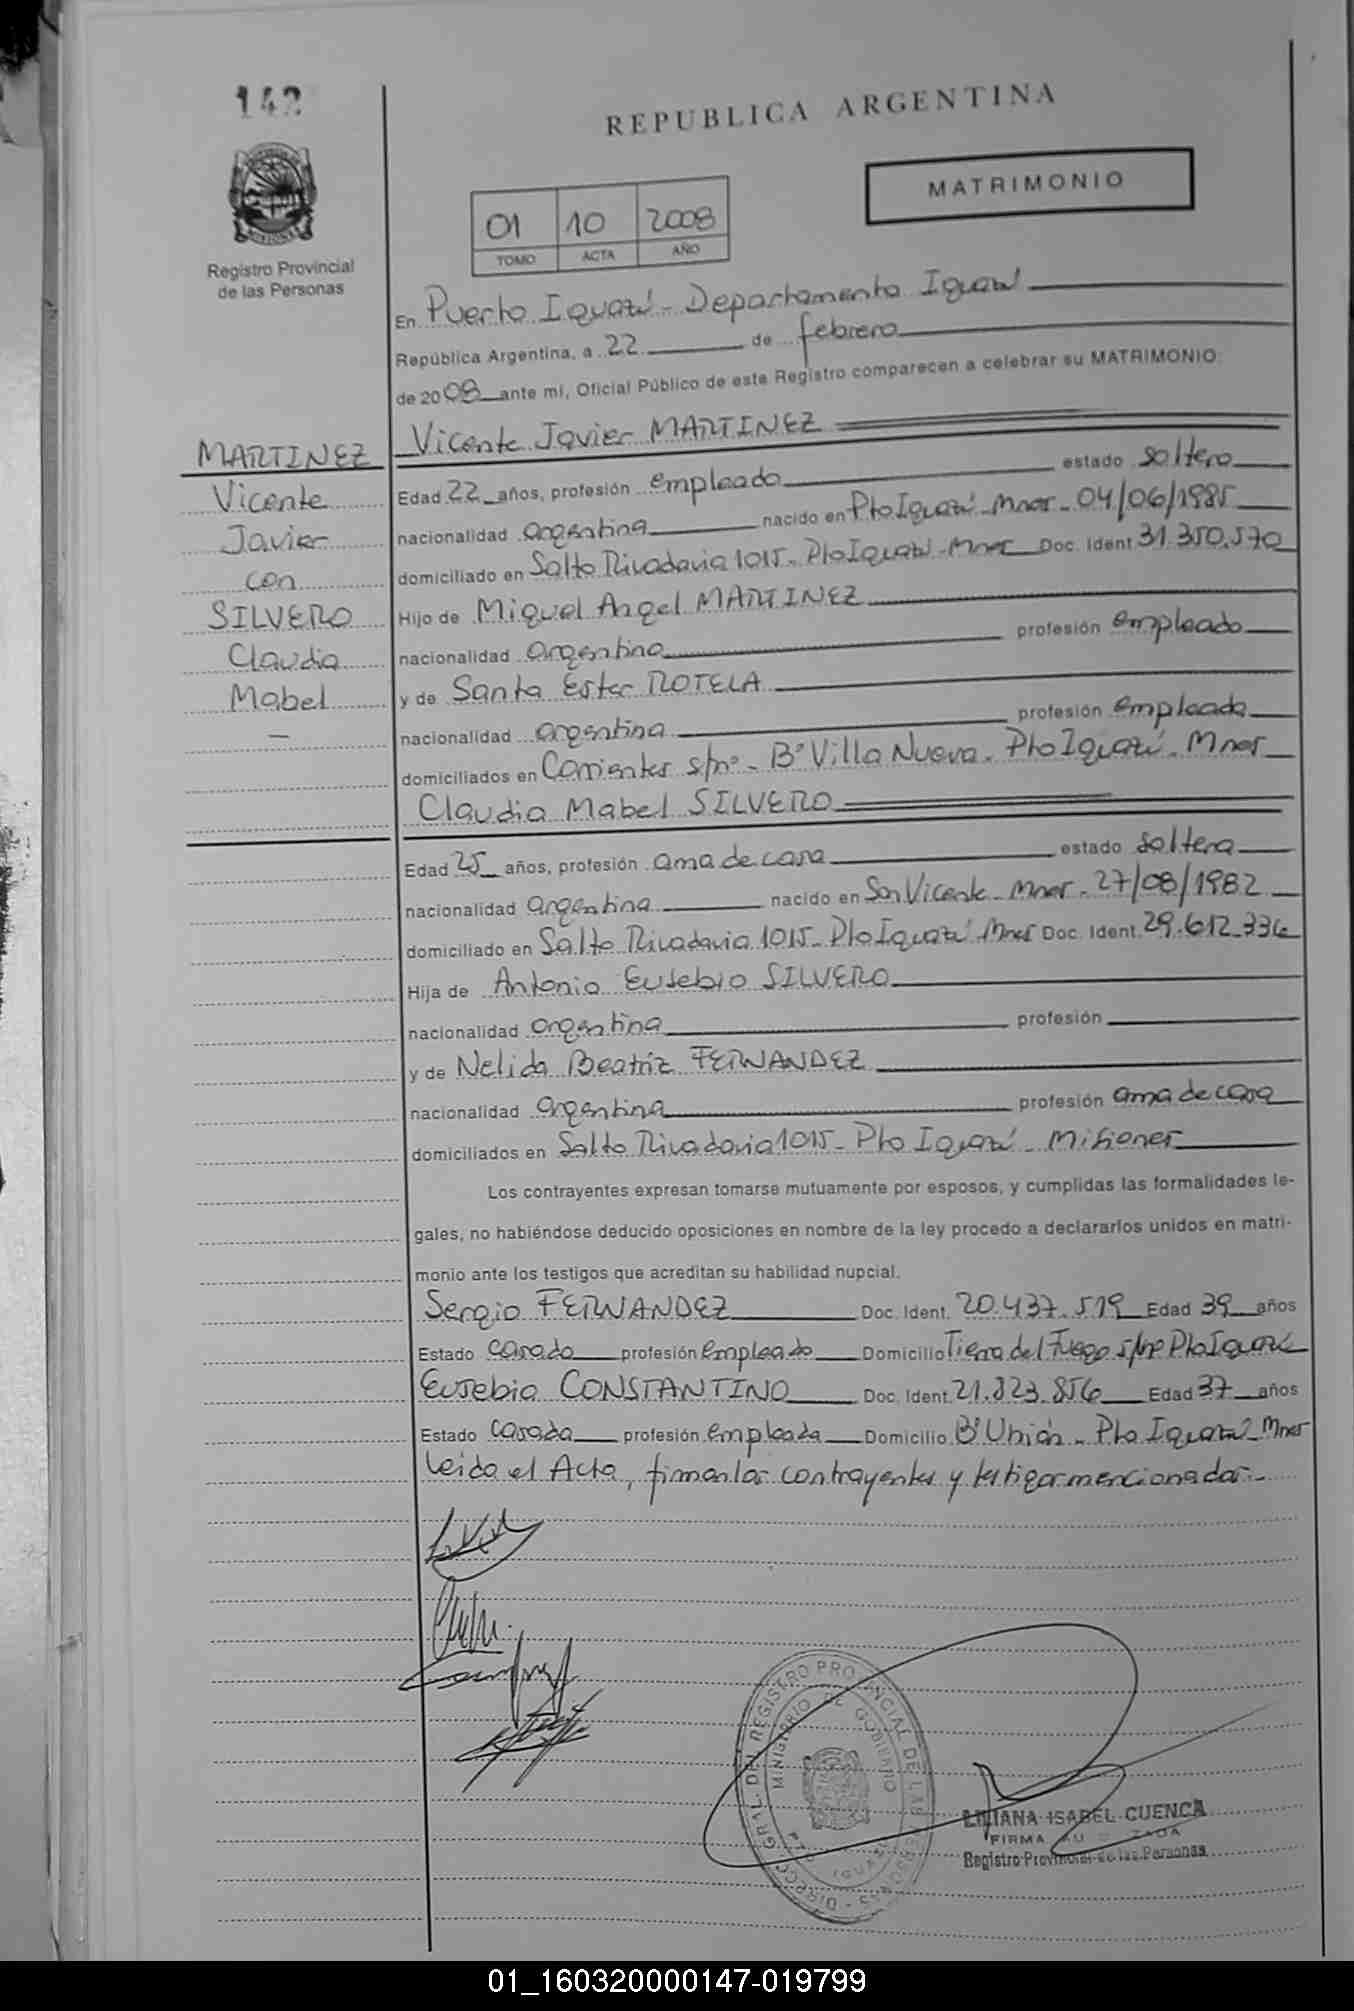 142
REPUBLICA ARGENTINA
MATRIMONIO
01 10 2008
TOMO ACTA AÑO
Registro Provincial
de las Personas
En Puerto Iguazú - Departamento Iguazú
República Argentina, a 22 de febrero
de 2008 ante mi, Oficial Público de este Registro comparecen a celebrar su MATRIMONIO:
MARTINEZ
Vicente
Javier
con
SILVERO
Claudia
Mabel
Vicente Javier MARTINEZ
Edad 22 años, profesión empleado estado soltero
nacionalidad argentina nacido en Pto Iguazú - Mnes - 04/06/1985
domiciliado en Salto Rivadavia 1015 - Pto Iguazú - Mnes Doc. Ident 31.350.570
Hijo de Miguel Angel MARTINEZ
nacionalidad argentina profesión empleado
y de Santa Ester ROTELA
nacionalidad argentina profesión empleada
domiciliados en Corrientes s/nº - Bº Villa Nueva - Pto Iguazú - Mnes
Claudia Mabel SILVERO
Edad 25 años, profesión ama de casa estado soltera
nacionalidad argentina nacido en San Vicente - Mnes - 27/08/1982
domiciliado en Salto Rivadavia 1015 - Pto Iguazú - Mnes Doc. Ident. 29.612.336
Hija de Antonio Eusebio SILVERO
nacionalidad argentina profesión
y de Nelida Beatriz FERNANDEZ
nacionalidad argentina profesión ama de casa
domiciliados en Salto Rivadavia 1015 - Pto Iguazú - Misiones
Los contrayentes expresan tomarse mutuamente por esposos, y cumplidas las formalidades le-
gales, no habiéndose deducido oposiciones en nombre de la ley procedo a declararlos unidos en matri-
monio ante los testigos que acreditan su habilidad nupcial.
Sergio FERNANDEZ Doc. Ident. 20.437.519 Edad 39 años
Estado casado profesión empleado Domicilio Tierra del Fuego s/nº Pto Iguazú
Eusebia CONSTANTINO Doc. Ident. 21.823.856 Edad 37 años
Estado casada profesión empleada Domicilio Bº Unión - Pto Iguazú - Mnes
Leída el Acta, firman los contrayentes y testigos mencionados.-
DIRECC. GRAL. DEL REGISTRO PROVINCIAL DE LAS PERSONAS
MINISTERIO DE GOBIERNO
PTO IGUAZU
LILIANA ISABEL CUENCA
FIRMA AUTORIZADA
Registro Provincial de las Personas
01_160320000147-019799